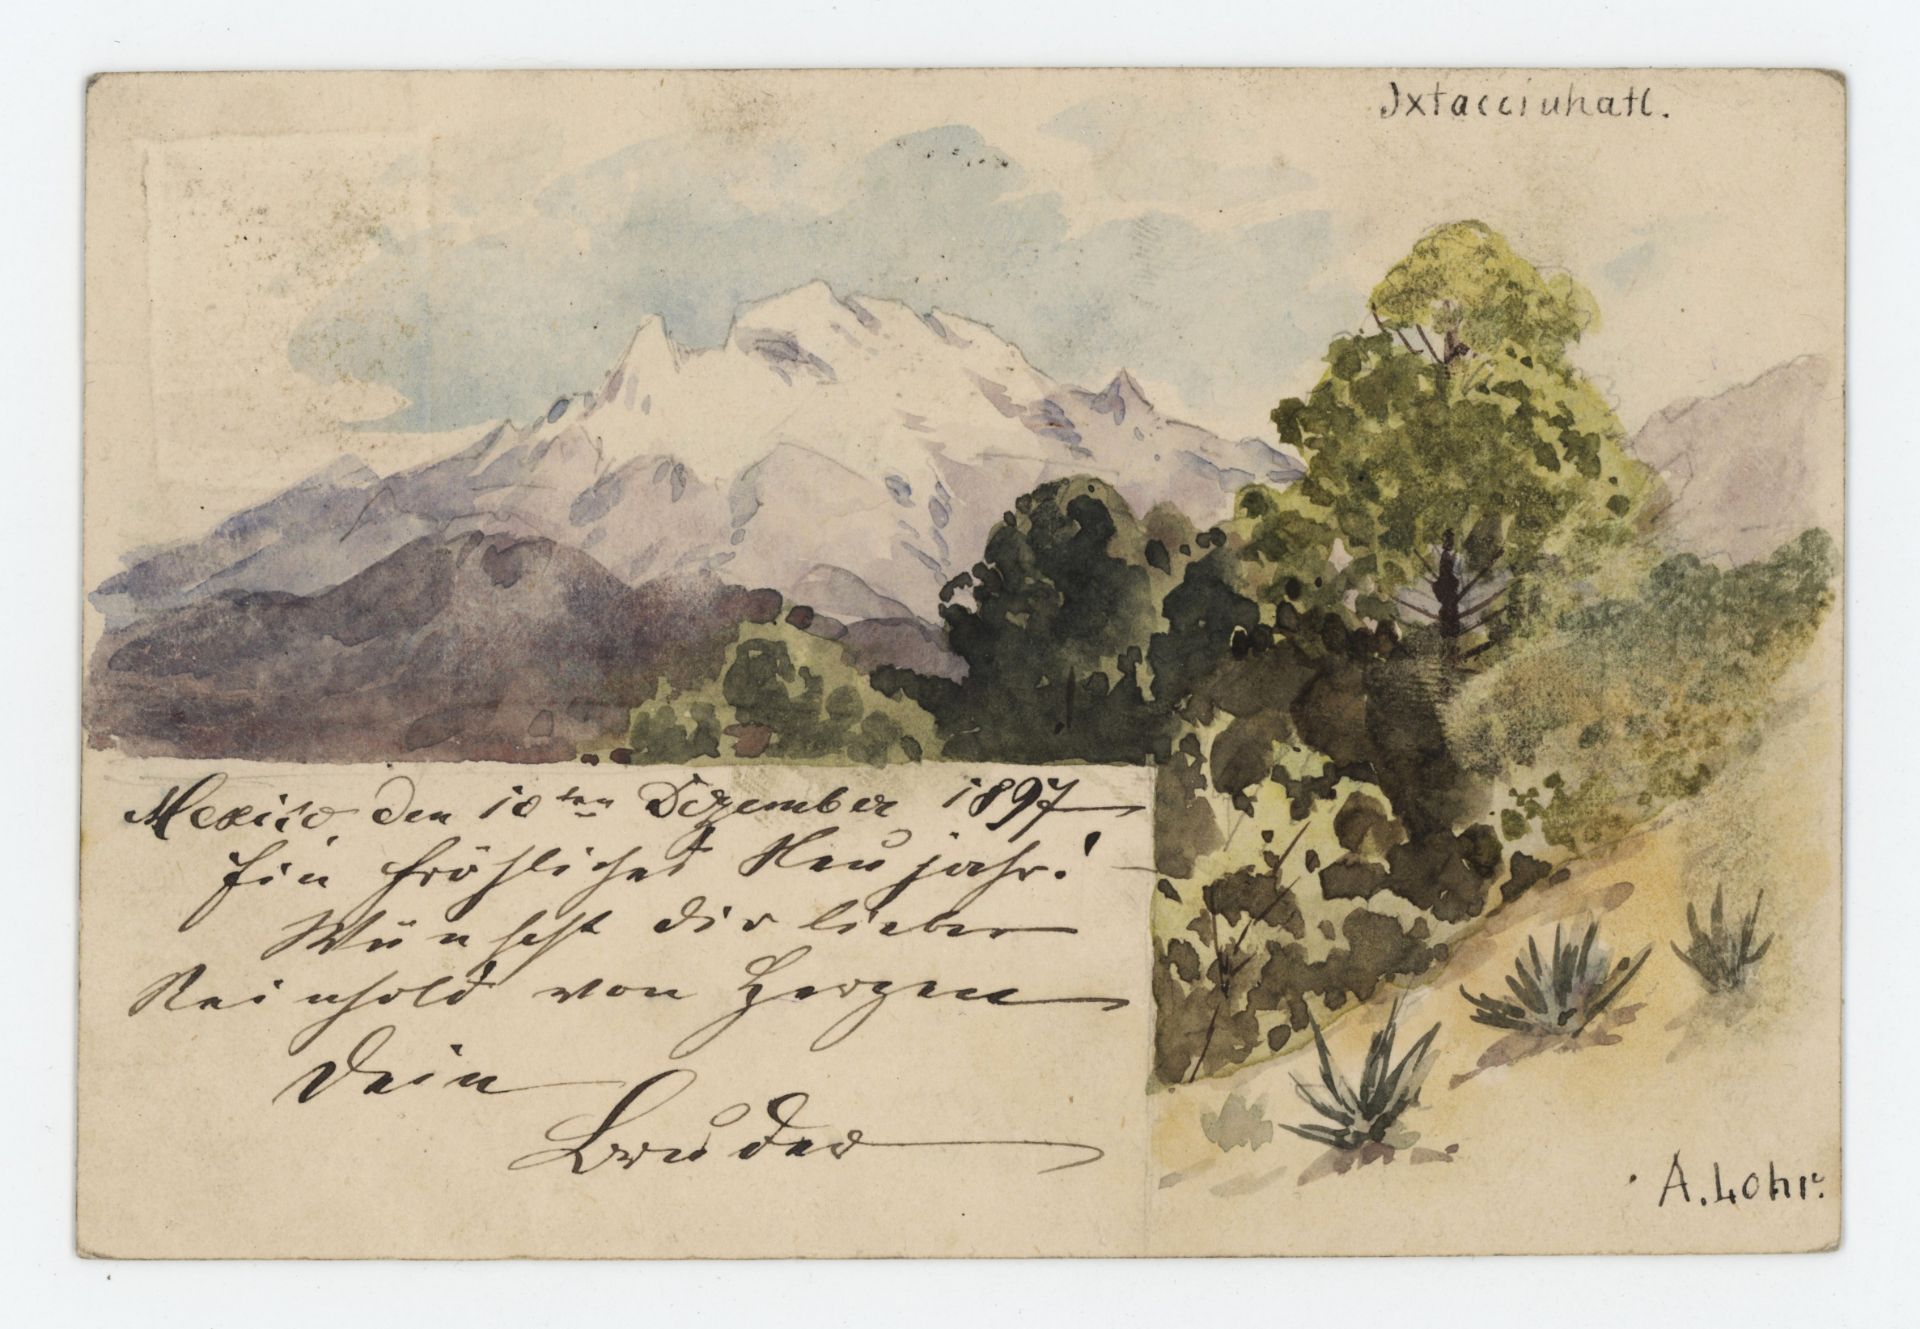 Ixtacciuhatl.
Mexico, den 18ten Dezember 1897
Ein fröhliches Neujahr!
Wünscht dir lieber
Reinhold von Herzen
Dein
Bruder
A. Lohr.